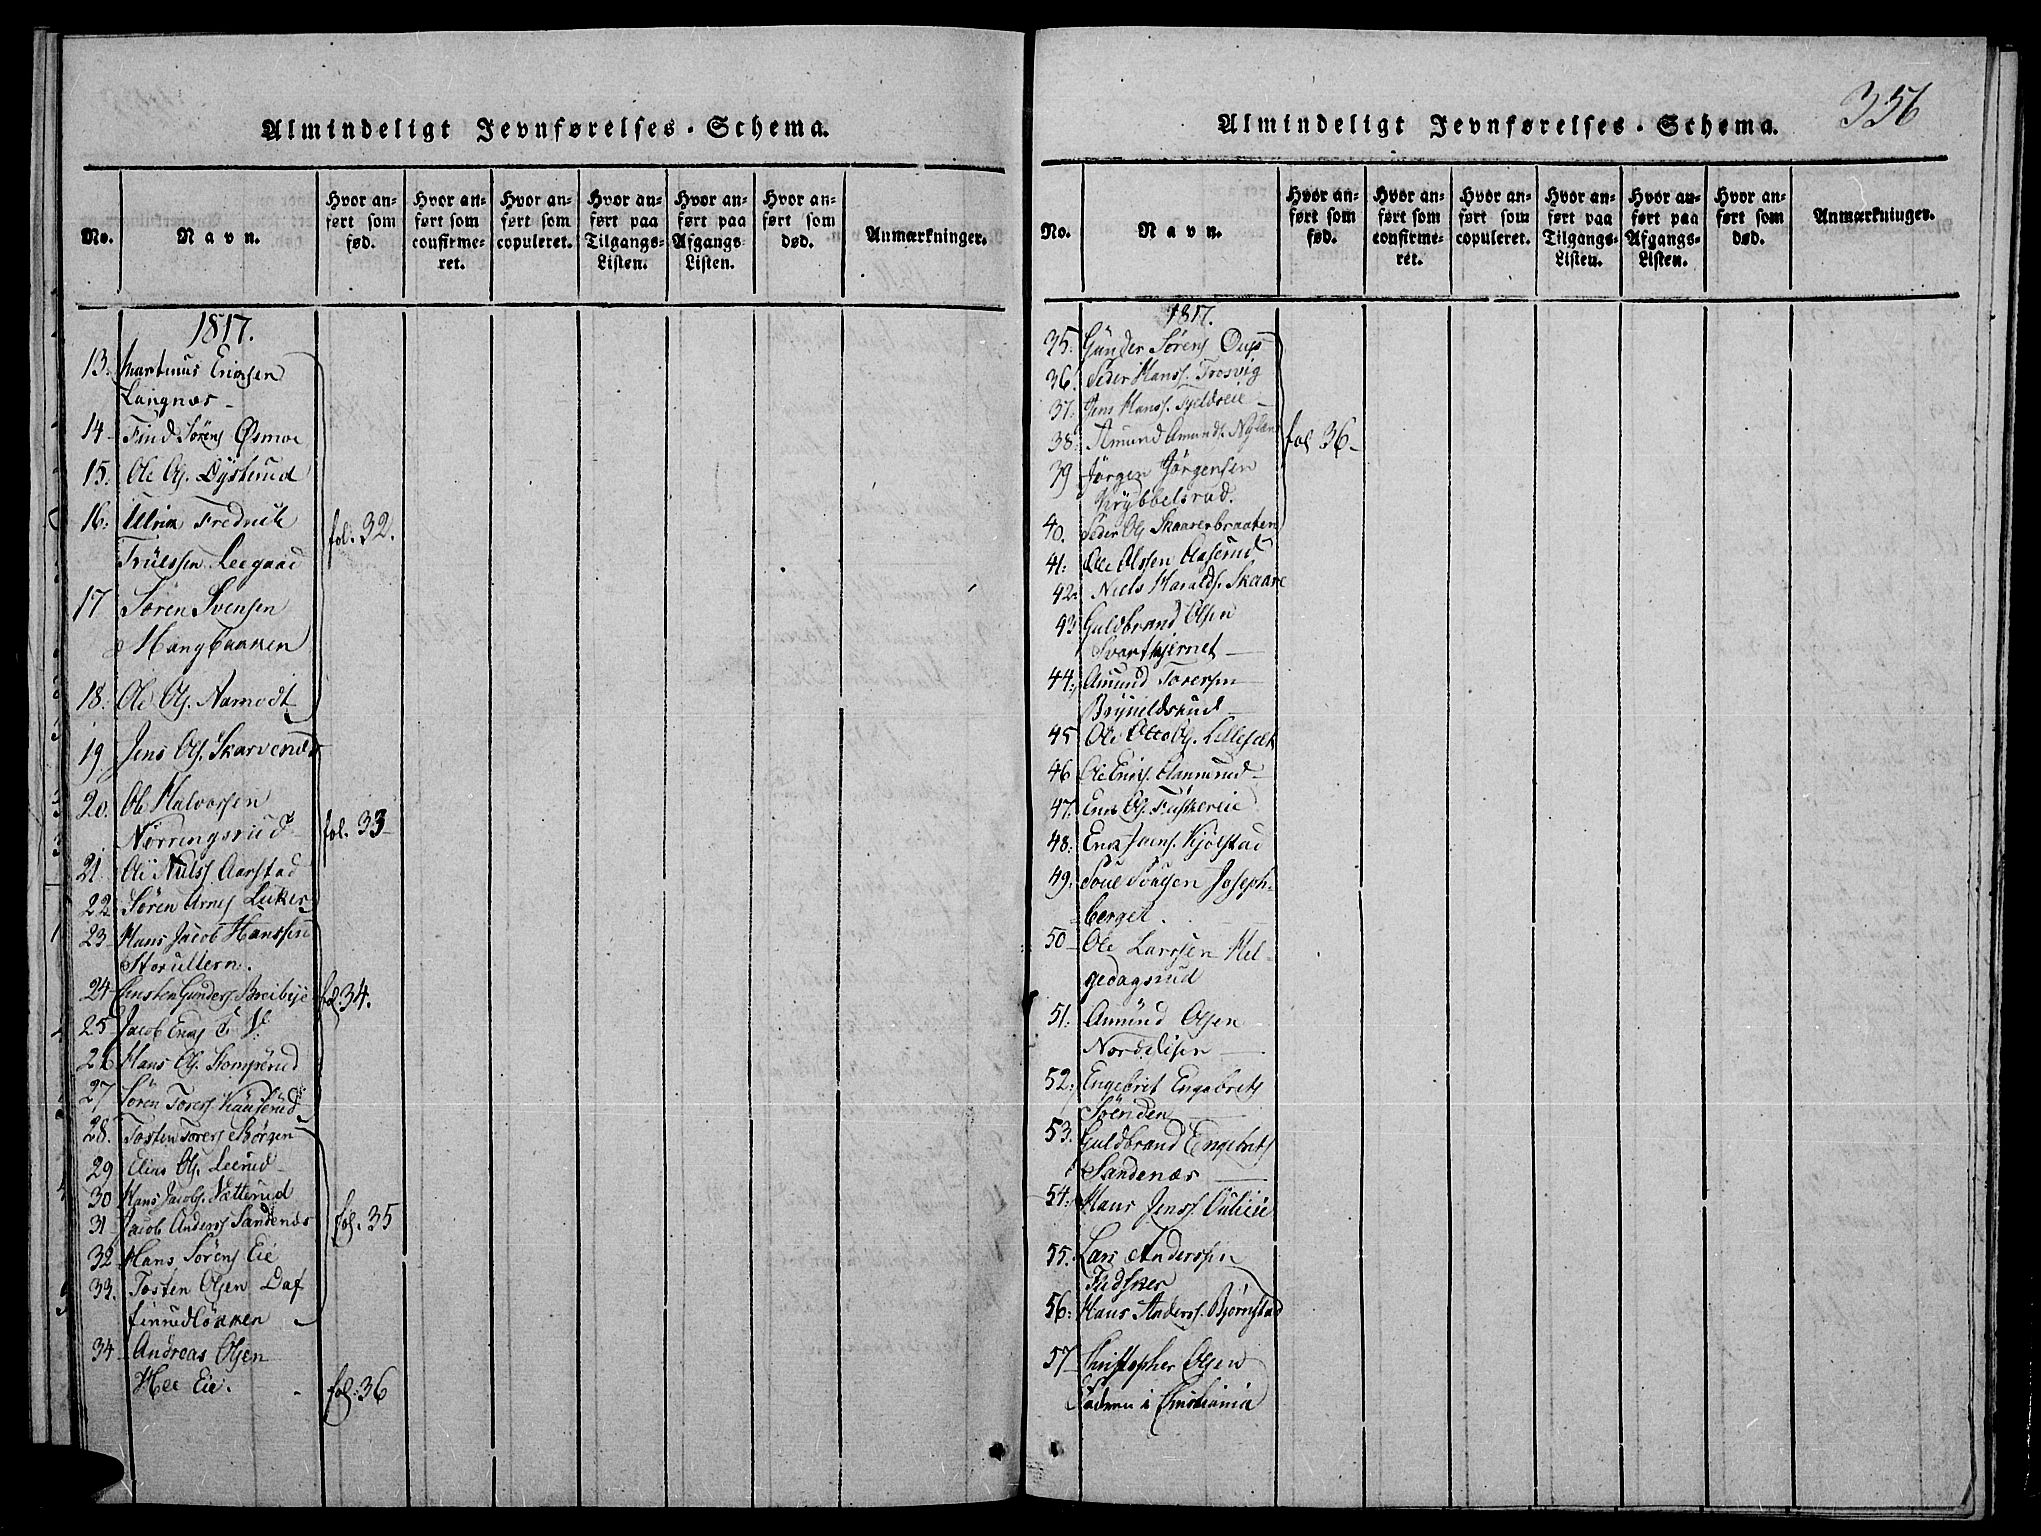 Almindeligt Jevnførelses-Schema.
No.
Navn.
Hvor anført som fød.
Hvor anført som confirmeret.
Hvor anført som copuleret.
Hvor anført paa Tilgangs-Listen.
Hvor anført paa Afgangs-Listen.
Hvor anført som død.
Anmærkninger.
1817.
13. Martinus Ericksen
Langnæs
14 Find Sörens Øsmoe
15. Ole Ols.
16. Ulrick Fredrich
Trulssen Leegaad
fol. 32.
17 Sören Svensen
Haugbakken
18. Ole Ols. Aamodt
19. Jens Ols. Skarvenæs
20. Ole Halvorsen
Nörringsrud
fol. 33
21. Ole Nilss. Aarstad
22. Sören Arnes
23 Hans Jacob Hanssen
Storullern.
24 Christen Gunders Breibye
fol. 34.
25 Jacob Ericks
26 Hans Ols. Stomperud
27 Sören Toress.
28. Tosten Torers
29 Elias Ols. Leerud
30 Hans Jacobs. Natterud
31 Jacob Anderss Sandenæs
fol. 35
32 Hans Sörens Eie
33. Tosten Olsen Daf
finrudlökken
34 Andreas Olsen
Hee Eie.
fol. 36
Almindeligt Jevnførelses-Schema.
356
No.
Navn.
Hvor anført som fød.
Hvor anført som confirmeret.
Hvor anført som copuleret.
Hvor anført paa Tilgangs-Listen.
Hvor anført paa Afgangs-Listen.
Hvor anført som død.
Anmærkninger.
1817.
35. Gunder Sörens
36. Peder Hanss. Trosvig
37. Jens Hanss.
38. Amund Amunds.
fol 36
39 Jörgen Jörgensen
Krybbelsrud.
40. Peder Ols Skaarerbraaten
41. Ole Olssen Aaserud
42. Niels Haralds. Skaare
43 Guldbrand Olsen
Svarthjernet
44. Amund Torersen
Brynildsrud
45 Ole Ols.
46 Ole Ericks.
47. Erick Ols. Fuskereie
48. Erick Jens. Kjölstad
49. Poul Poulsen Joseph-
berget.
50 Ole Larssen Hel-
gedagsrud
51. Amund Olsen
Nordelisen
52. Engebrit Engebrets
53. Guldbrand Engebrets
Sandenæs
54. Hans Jenss.
55. Lars Anderssen
Fudsker
56. Hans Anderss. Björnstad
57 Christopher Olsen
Faderen i Christiania